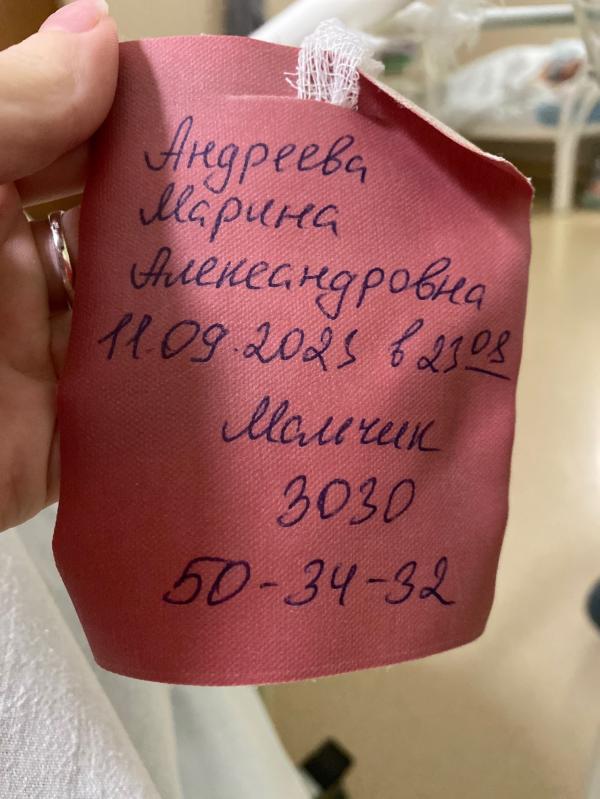 Андреева
Марина
Александровна
11.09.2023 в 23 08
Мальчик
3030
50-34-32